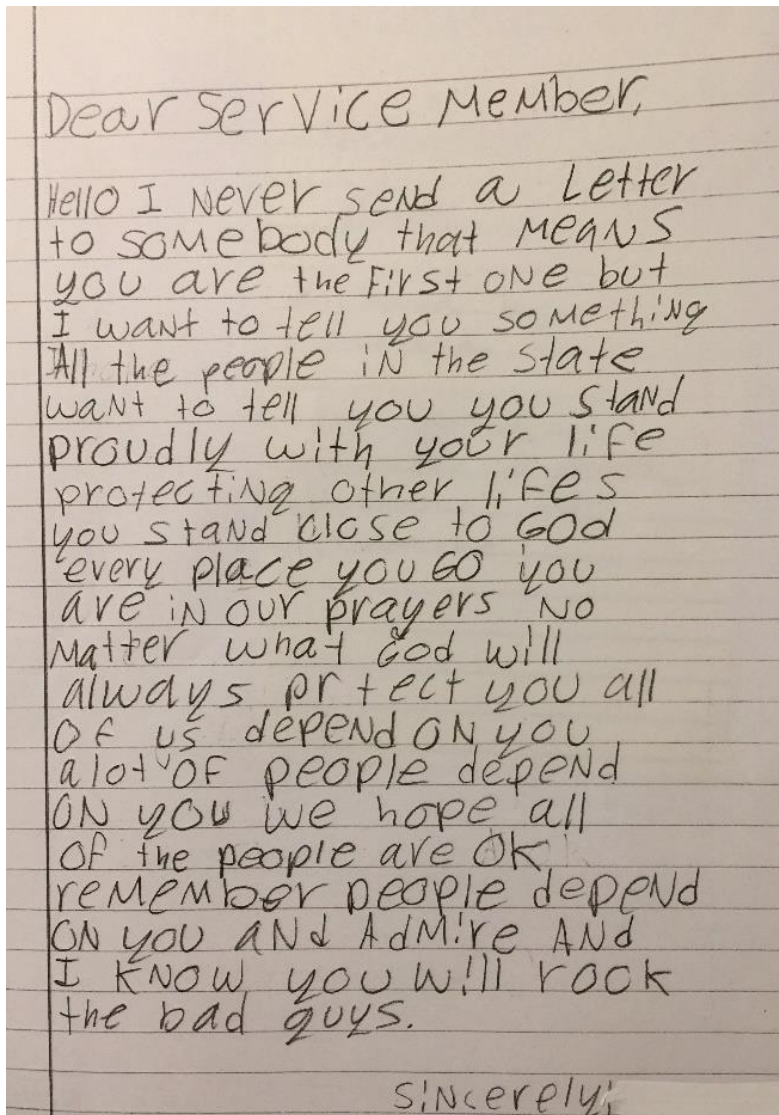 Dear Service Member,
Hello I Never send a Letter
to somebody that means
you are the First one but
I want to tell you something
All the people in the state
want to tell you you stand
proudly with your life
protecting other lifes
you stand close to God
every place you Go you
are in our prayers No
Matter what God will
always prtect you all
Of us depend on you
alot of people depend
ON you we hope all
Of the people are OK
remember people depend
ON you and Admire And
I know you will rock
the bad guys.
Sincerely,